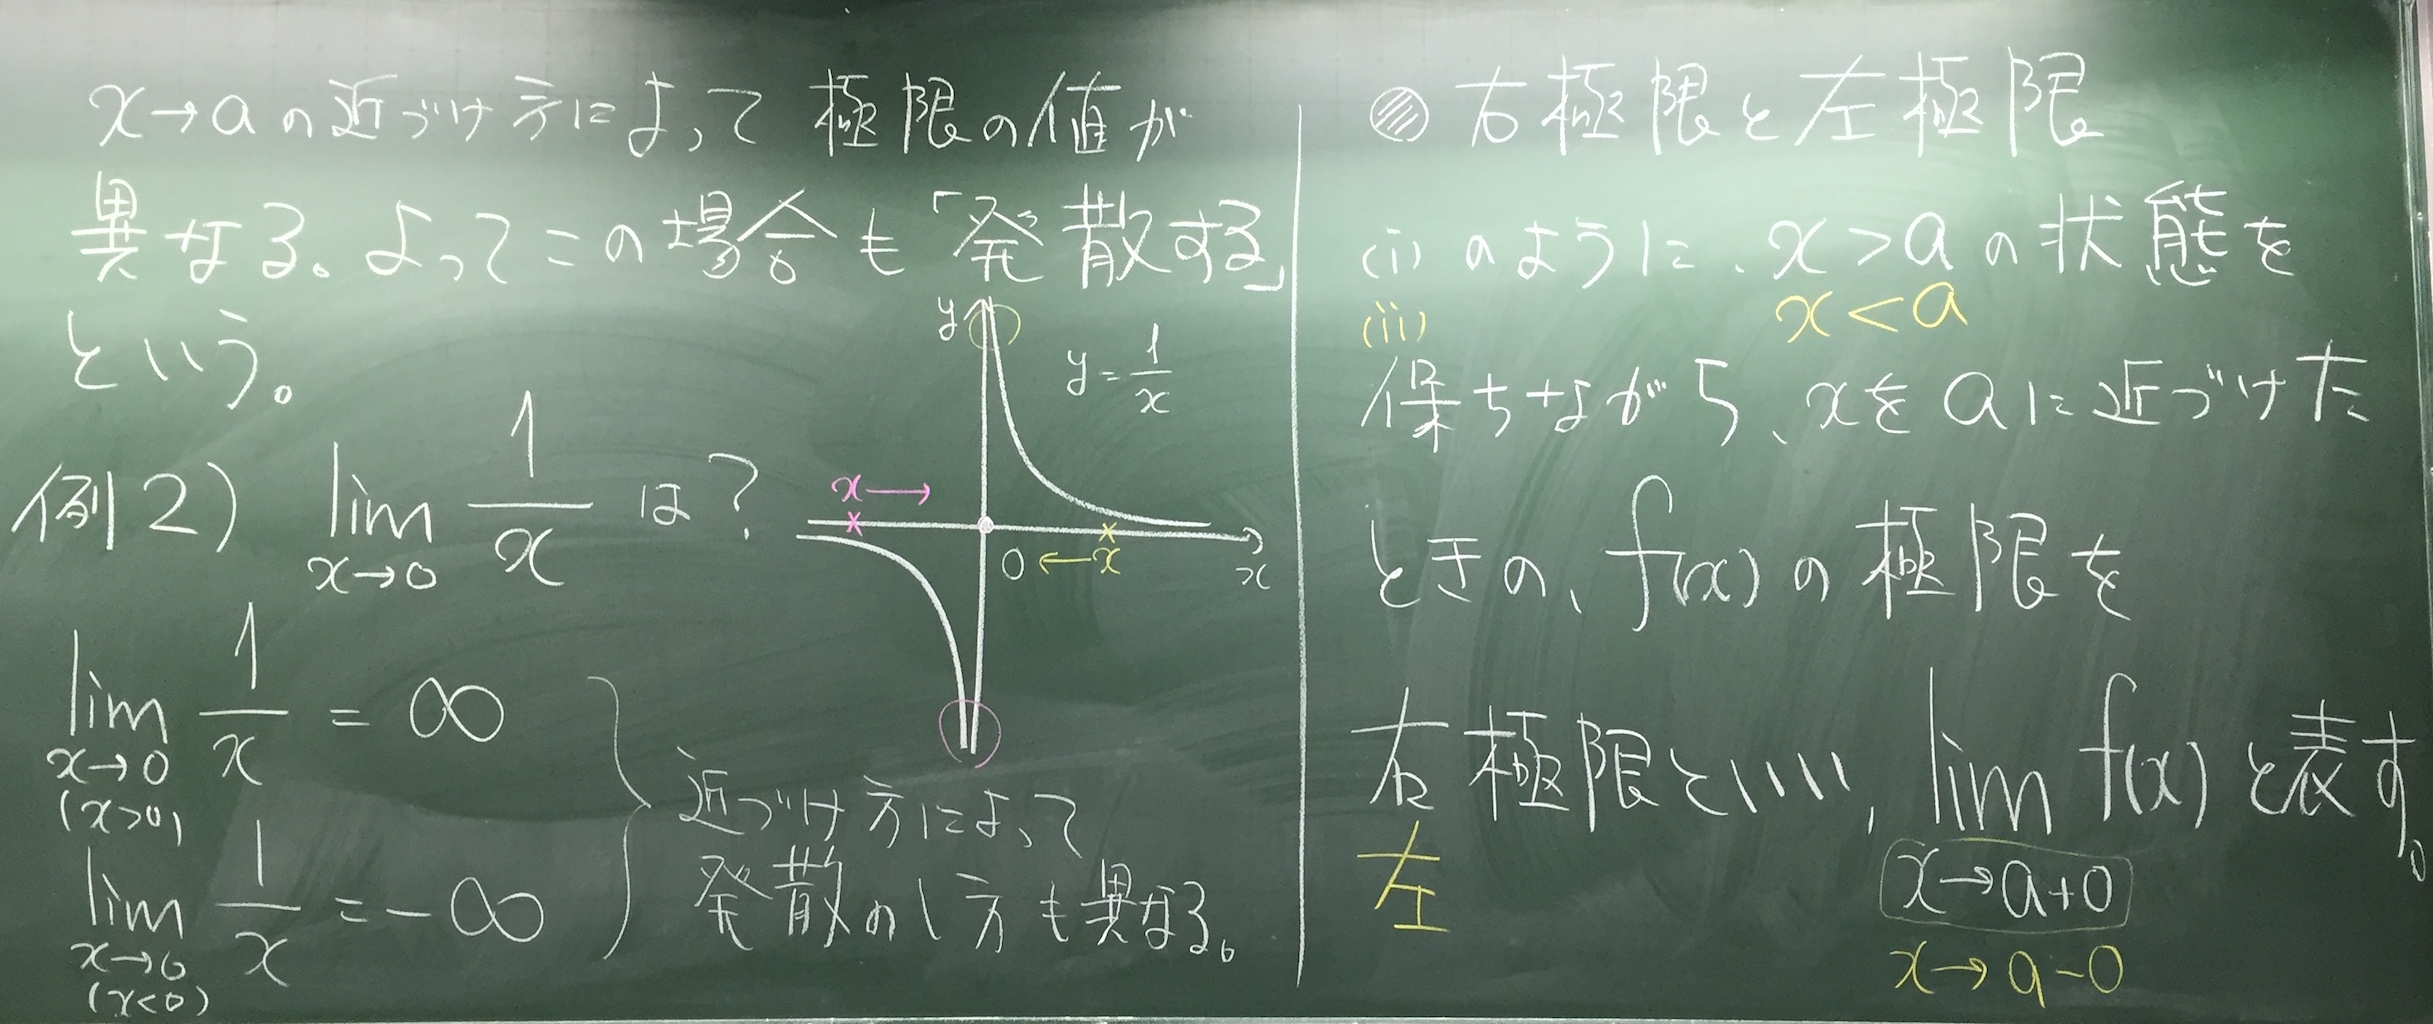 x→aの近づけ方によって極限の値が
異なる。よってこの場合も「発散する」
という。
例2) lim x→0 1/x は?
y
y=1/x
x→
0 ←x
x
lim x→0 (x>0) 1/x = ∞
lim x→0 (x<0) 1/x = -∞
近づけ方によって
発散のし方も異なる。
右極限と左極限
(i) のように、x>aの状態を
(ii) x<a
保ちながら、xをaに近づけた
ときの、f(x)の極限を
右極限といい, lim f(x) と表す。
左 x→a+0
x→a-0